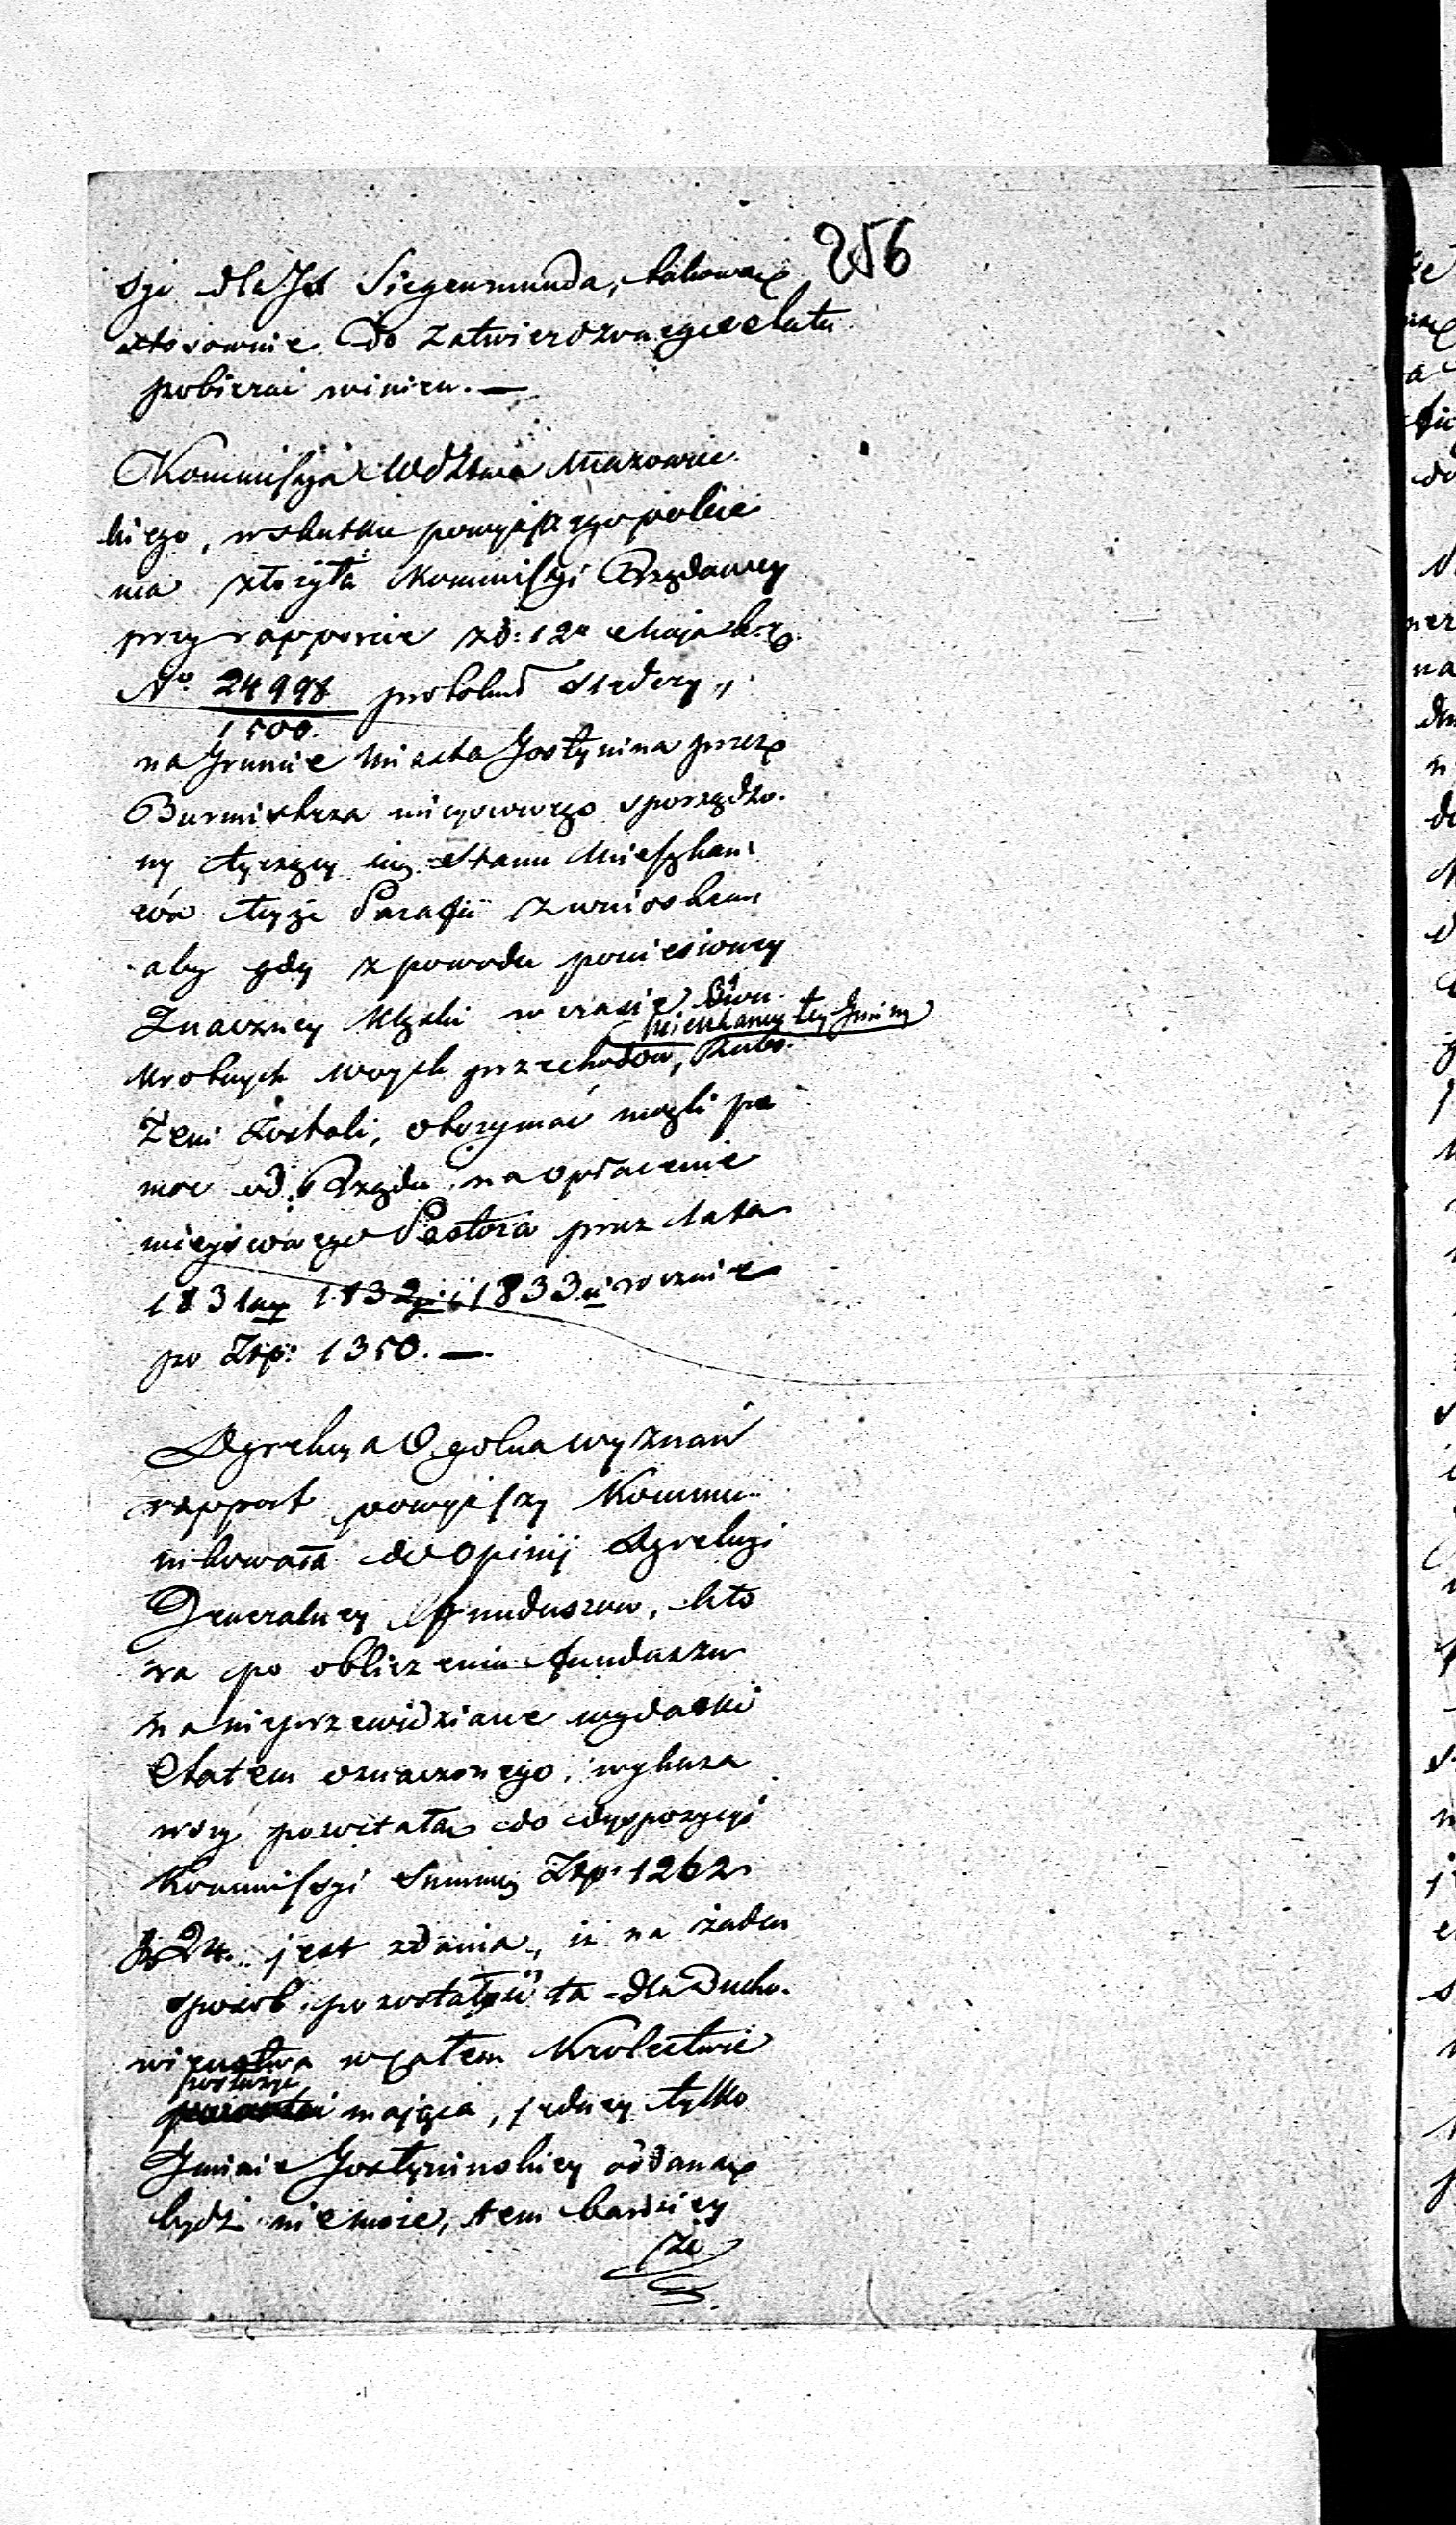 256
sji dla Jx Siegenmunda, takową
stosownie do zatwierdzonego etatu
pobierać winien. —
Kommissyja Wdztwa Mazowiec
kiego, w skutku powyższego polece
nia złożyła Kommissyi Rządowey
przy rapporcie z d: 12 Maja b. r.
No. 24998 protokuł
1500.
na gruncie Miasta Gostynina przez
Burmistrza mieyscowego sporządzo-
ny tyczący się Stanu Mieszkań
ców teyże Parafii z wnioskiem
aby gdy z powodu poniesioney
Znaczney klęski w czasie dwu
mieszkańcy tey Gminy
krotnych woysk przechodów, zubo-
żeni zostali, otrzymać mogli po
moc od Rządu na opłacenie
mieyscowego Pastora przez lata
1831 1832 i 1833 rocznie
po Złp: 1350. —
Dyrekcya Ogolna wyznań
rapport powyższy Kommu-
nikowała do opinij Dyrekcyi
Generalney Funduszow, któ
ra po obliczeniu funduszu
na nieprzewidziane wydatki
Etatem oznaczonego, wykaza
wszy pozostałą do dyspozycyi
Kommissyi Summę Złp. 1262
gr 24. jest zdania, iż na żaden
sposób pozostałość ta dla Ducho-
wieństwa w całem Krolestwie
służyć
mająca, jedney tylko
Gminie Gostynińskiey oddaną
bydź nie może, tem bardziey
że